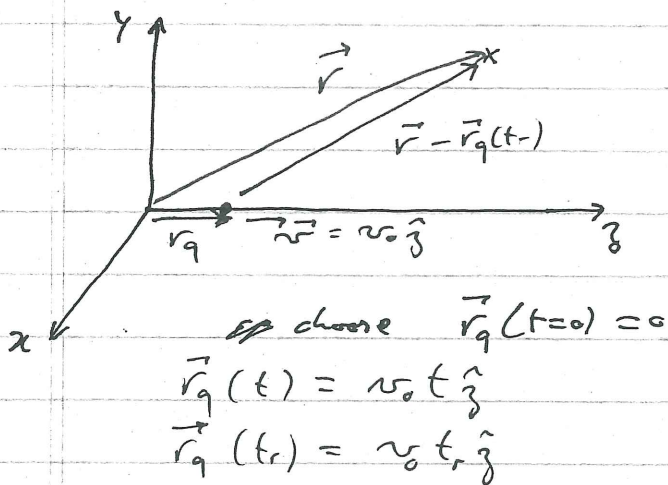 y
r⃗
x
r⃗ − r⃗q(tr)
rq
v⃗ = v₀ ẑ
z
x
choose r⃗q (t=0) = 0
r⃗q (t) = v₀ t ẑ
r⃗q (tr) = v₀ tr ẑ